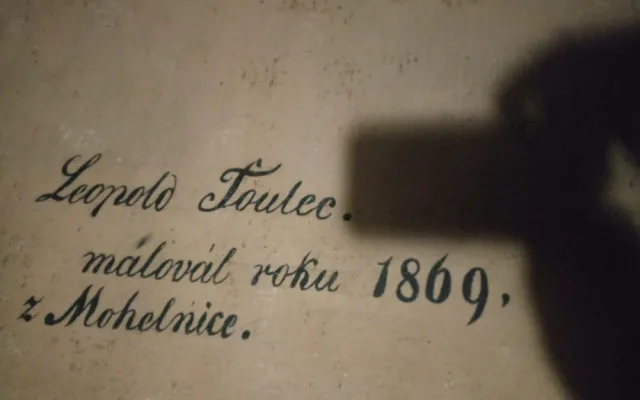 Leopold Toulec.
málovál roku 1869.
z Mohelnice.